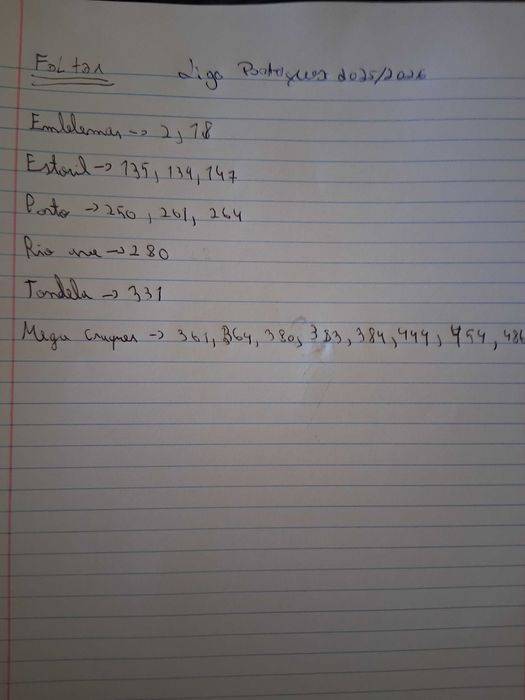 Faltas Liga Portuguesa 2025/2026
Emblemas -> 2, 18
Estoril -> 135, 139, 147
Porto -> 250, 261, 264
Rio ave -> 280
Tondela -> 331
Mega craques -> 361, 364, 380, 383, 384, 444, 454, 486